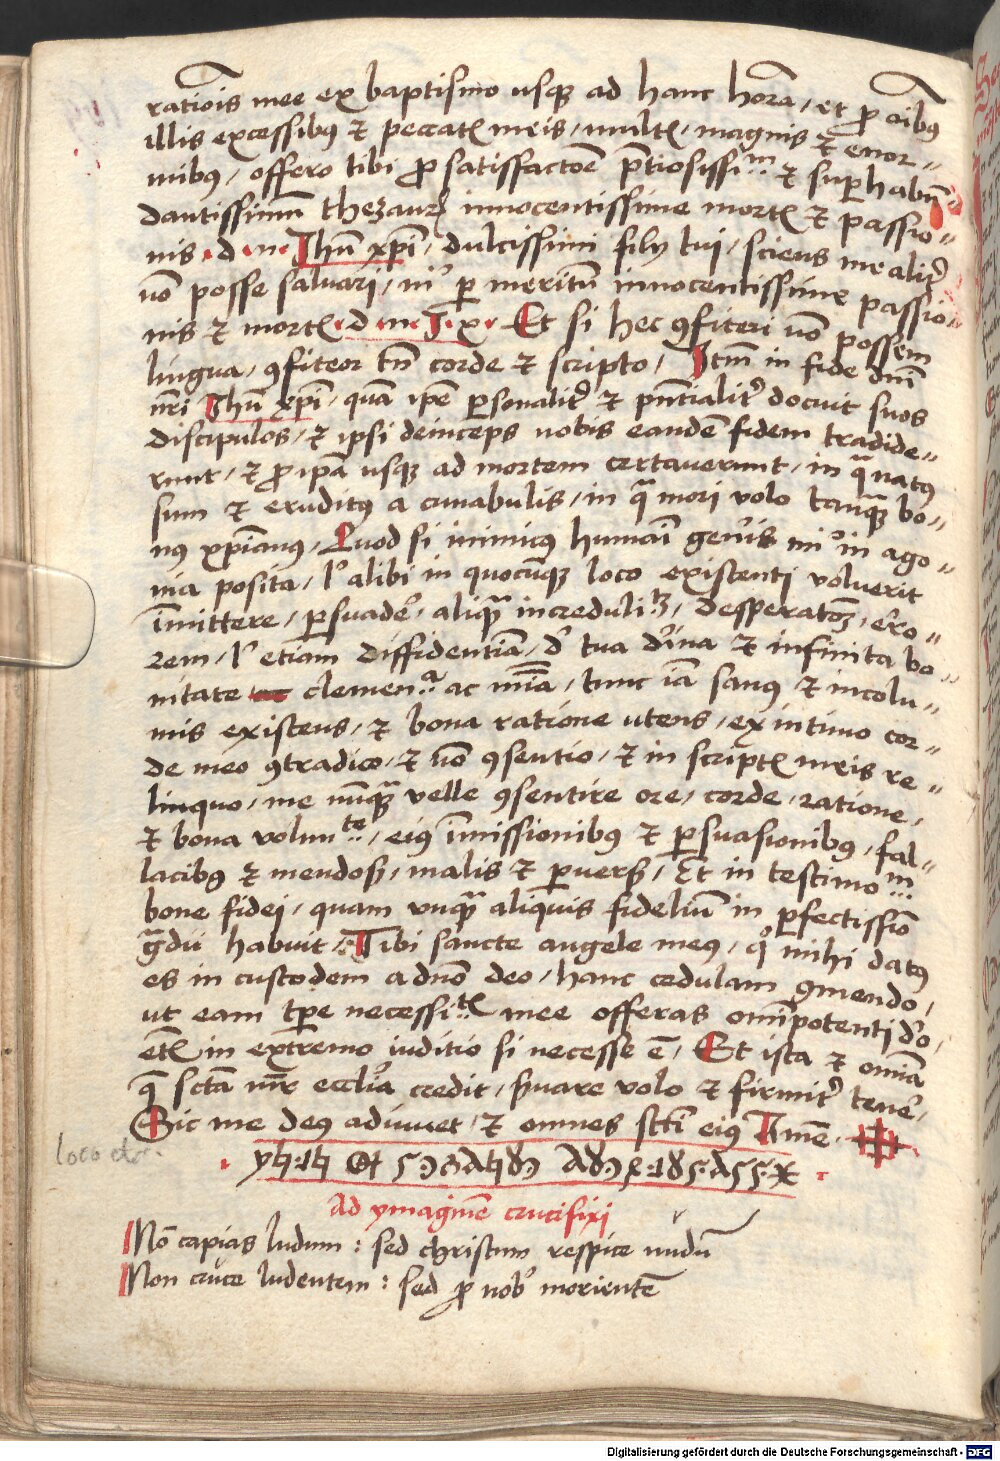 ratiõis mee ex baptismo usq3 ad hanc horã, et ꝓ oĩbꝰ
illis excessibꝰ et peccatis meis, multis, magnis et enor=
mibus, offero tibi ꝓ satisfactõe p̃tiosissimũ et superhabũ=
dantissimũ thezaurum innocentissime mortis et passio=
nis · d · n · Jhũ xp̃i, dulcissimi filij tui, sciens me aliter
nõ posse salvari, nisi per meritũ innocentissime passio=
nis et mortis · d · n · J · x · Et si hec ꝯfiteri nõ possem
lingua, ꝯfiteor tñ corde et scripto, Itẽ in fide dñi
nr̃i Jhũ xp̃i, quã ipẽ personaliter et p̃ntialiter docuit suos
discipulos, et ipsi deinceps nobis eandẽ fidem tradide=
runt, et ꝓ ipã usq3 ad mortem certaverunt, in qua natus
sum et eruditus a cunabulis, in qua mori volo tanquam bo=
nus xp̃ianus, Quod si inimicus humani generis mihi in ago=
nia posita, vel alibi in quocũq3 loco existenti voluerit
ĩmittere, persuadere, aliquã incredulitatem, desperationem, erro=
rem, vel etiam diffidentiã, de tua divina et infinita bo=
nitate clementia ac mĩa, tunc iã sanus et incolu=
mis existens, et bona ratione utens, ex intimo cor=
de meo ꝯtradico, et nõ ꝯsentio, et in scriptis meis re=
linquo, me nũquam velle ꝯsentire ore, corde, ratione,
et bona voluntate, eius ĩmissionibus et persuasionibus, fal=
lacibus et mendosis, malis et perversis, Et in testimonium
bone fidei, quam unquam aliquis fideliũ in perfectissimo
gradu habuit, Tibi sancte angele meus, qui mihi datus
es in custodem a dño deo, hanc cedulam ꝯmendo,
ut eam tp̃e necessitatis mee offeras omĩpotenti deo,
etc̃ in extremo iuditio si necesse ẽ, Et ista et omnia
que sctã mr̃ eccl̃ia credit, servare volo et firmiter tenere,
Sic me deus adiuvet, et omnes scti eius Amẽ
Ad ymaginẽ crucifixi
Nõ capias ludum : sed christum respice nudũ
Non cruce ludentem : sed ꝓ nobis morientẽ
Digitalisierung gefördert durch die Deutsche Forschungsgemeinschaft - DFG